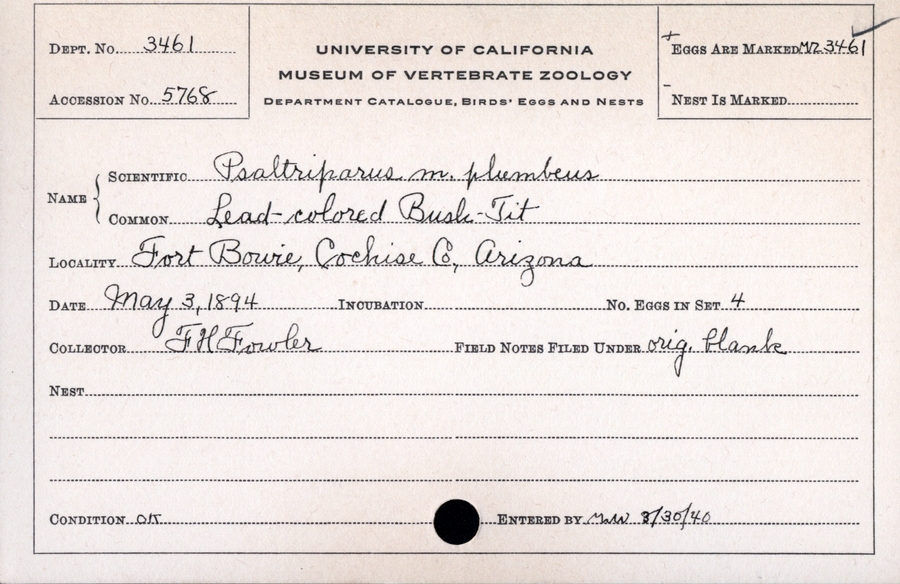 DEPT. No. 3461
ACCESSION No. 5768
UNIVERSITY OF CALIFORNIA
MUSEUM OF VERTEBRATE ZOOLOGY
DEPARTMENT CATALOGUE, BIRDS' EGGS AND NESTS
+ EGGS ARE MARKED 3461
- NEST IS MARKED
NAME
SCIENTIFIC Psaltriparus m. plumbeus
COMMON Lead-colored Bush-Tit
LOCALITY Fort Bowie, Cochise Co, Arizona
DATE May 3, 1894 INCUBATION No. EGGS IN SET 4
COLLECTOR F H Fowler FIELD NOTES FILED UNDER orig. blank
NEST
CONDITION OK ENTERED BY 3/30/40